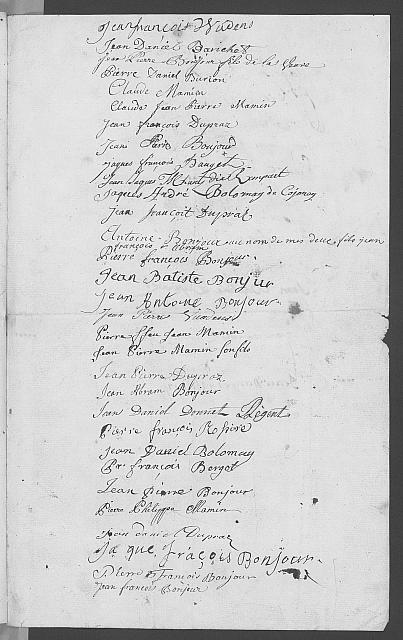 Jean françois Wudens
Jean Daniel Barichet
Jean Pierre Bonjour fils de la Veuve
Pierre Daniel Burton
Claude Mamin
Claude Jean Pierre Mamin
Jean françois Dupraz
Jean Bonjour
Jaques françois Banget
Jean Jaques
Jaques André Bolomay du Cojonay
Jean francoit Dupraz
Antoine Bonjour au nom de mes deux fils jean
françois Abram
Pierre françois Bonjour
Jean Batiste Bonjur
Jean Antoine Bonjour
Jean Pierre
Pierre ffeu Jean Mamin
Jean Pierre Mamin son fils
Jean Pierre Dupraz
Jean Abram Bonjour
Jean Daniel Donnet Régent
Pierre françois
Jean Daniel Bolomay
Pre françois Berget
Jean Pierre Bonjour
Pierre Philippe Mamin
daniel Dupraz
Ja que fraçois Bonjour
Pierre francois Bonjour
Jean francois Bonjour